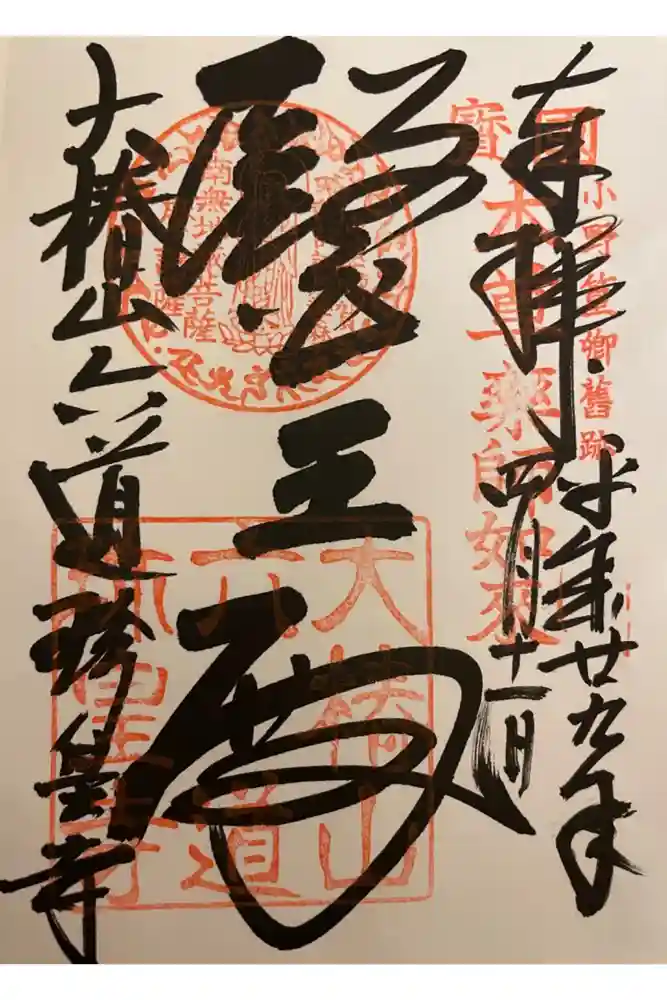 奉拝
平成廿九年
四月十一日
小野篁卿舊跡
國寶
本尊藥師如來
醫王殿
南無地蔵菩薩
大椿山
六道
珍皇寺
大椿山六道珍皇寺